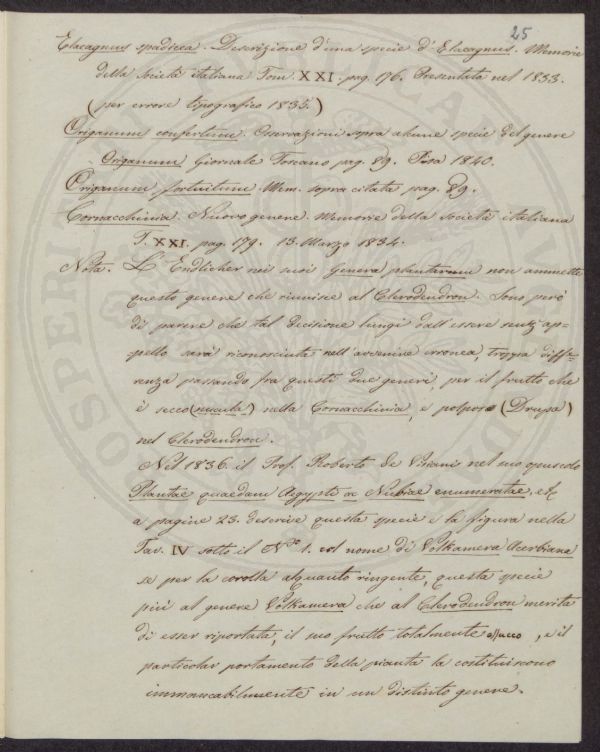 25
Elaeagnus spadicea. Descrizione d'una specie d'Elaeagnus. Memorie
della Società italiana Tom. XXI. pag. 176. Presentata nel 1833.
(per errore tipografico 1835.)
Origanum confertum. Osservazioni sopra alcune specie del genere
Origanum Giornale Toscano pag. 89. Pisa 1840.
Origanum fortuitum Mem. sopra citata pag. 89.
Cornacchinia. Nuovo genere. Memorie della Società italiana
T. XXI. pag. 179. 13. Marzo 1834.
Nota. L'Endlicher nei suoi Genera plantarum non ammette
questo genere che riunisce al Clerodendron. Sono però
di parere che tal decisione lungi dall'essere senz'ap=
pello sarà riconosciuta nell'avvenire erronea, troppa diffe=
renza passando fra questi due generi per il frutto che
è secco (nucula) nella Cornacchinia, e polposo (Drupa)
nel Clerodendron.
Nel 1836. il Prof. Roberto de Visiani nel suo opuscolo
Plantae quaedam Aegypti ac Nubiae enumeratae, &c
a pagine 23. descrive questa specie e la figura nella
Tav. IV sotto il N.º 1. col nome di Volkamera Acerbiana
se per la corolla alquanto ringente, questa specie
più al genere Volkamera che al Clerodendron merita
di esser riportata, il suo frutto totalmente secco, e il
particolar portamento della pianta la costituiscono
immancabilmente in un distinto genere.